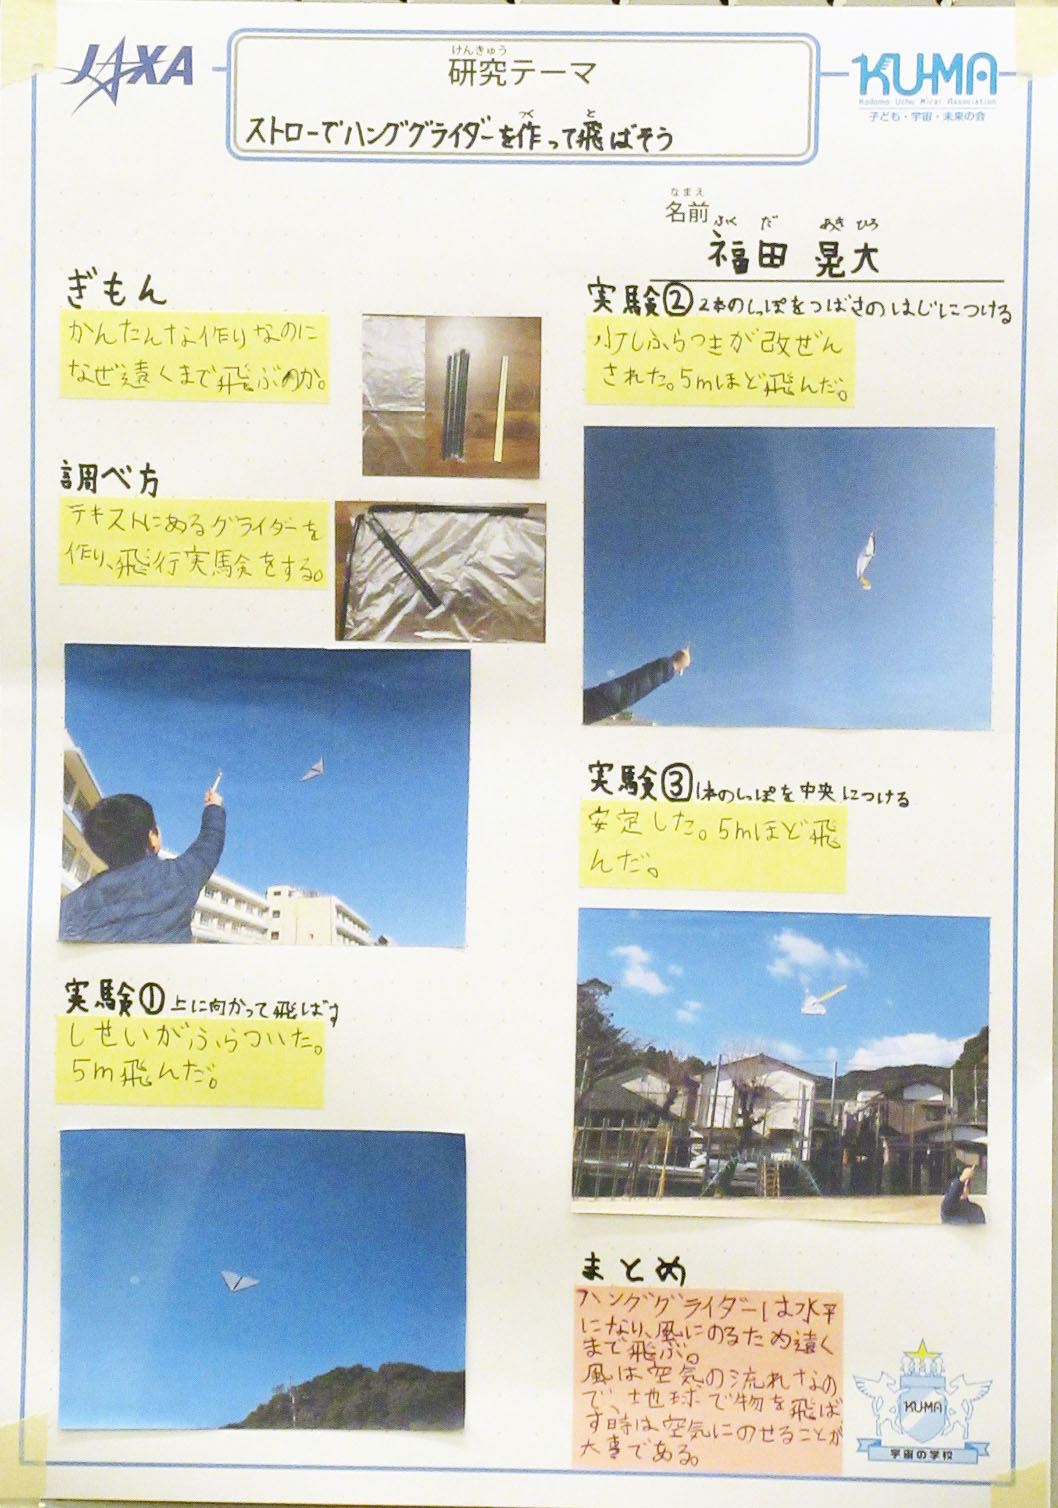 JAXA
けんきゅう
研究テーマ
つく と
ストローでハンググライダーを作って飛ばそう
KU-MA
Kodomo Uchu Mirai Association
子ども・宇宙・未来の会
なまえ
名前
ふくだ あきひろ
福田 晃大
ぎもん
かんたんな作りなのに
なぜ遠くまで飛ぶのか。
調べ方
テキストにあるグライダーを
作り、飛行実験をする。
実験① 上に向かって飛ばす
しせいがふらついた。
5m飛んだ。
実験② 2本のしっぽをつばさのはじにつける
少しふらつきが改ぜん
された。5mほど飛んだ。
実験③ 1本のしっぽを中央につける
安定した。5mほど飛
んだ。
まとめ
ハンググライダーは水平
になり、風にのるため遠く
まで飛ぶ。
風は空気の流れなの
で、地球で物を飛ば
す時は空気にのせることが
大事である。
KUMA
宇宙の学校